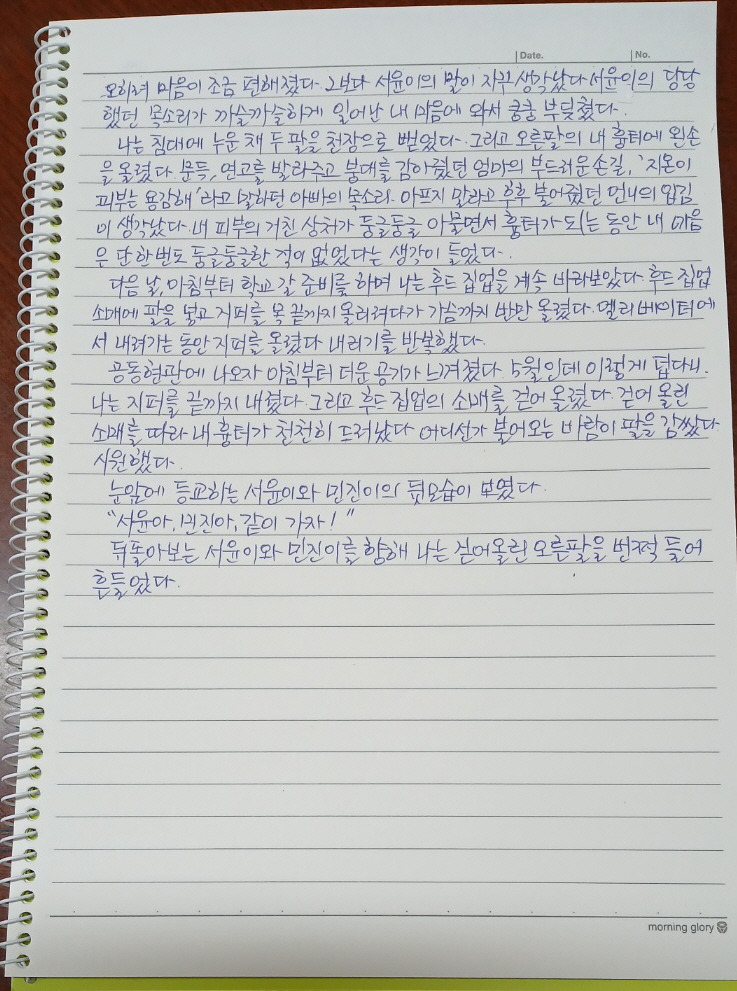 Date.
No.
오히려 마음이 조금 편해졌다. 그보다 서윤이의 말이 자꾸 생각났다 서윤이의 당당
했던 목소리가 까슬까슬하게 일어난 내 마음에 와서 쿵쿵 부딪쳤다.
나는 침대에 누운 채 두 팔을 천장으로 뻗었다. 그리고 오른팔의 내 흉터에 왼손
을 올렸다. 문득, 연고를 발라주고 붕대를 감아줬던 엄마의 부드러운 손길, '지온이
피부는 용감해'라고 말하던 아빠의 목소리. 아프지 말라고 후후 불어줬던 언니의 입김
이 생각났다. 내 피부의 거친 상처가 둥글둥글 아물면서 흉터가 되는 동안 내 마음
은 단 한번도 둥글둥글한 적이 없었다는 생각이 들었다.
다음 날, 아침부터 학교 갈 준비를 하며 나는 후드 집업을 계속 바라보았다. 후드 집업
소매에 팔을 넣고 지퍼를 목 끝까지 올리려다가 가슴까지 반만 올렸다. 엘리베이터에
서 내려가는 동안 지퍼를 올렸다 내리기를 반복했다.
공동현관에 나오자 아침부터 더운 공기가 느껴졌다. 5월인데 이렇게 덥다니.
나는 지퍼를 끝까지 내렸다. 그리고 후드 집업의 소매를 걷어 올렸다. 걷어 올린
소매를 따라 내 흉터가 천천히 드러났다. 어디선가 불어오는 바람이 팔을 감쌌다
시원했다.
눈앞에 등교하는 서윤이와 민진이의 뒷모습이 보였다.
"서윤아, 민진아, 같이 가자!"
뒤돌아보는 서윤이와 민진이를 향해 나는 걷어올린 오른팔을 번쩍 들어
흔들었다.
morning glory